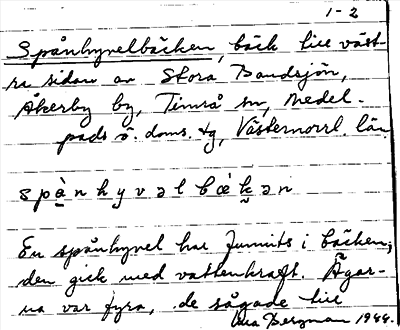 1-2
Spånhyvelbäcken, bäck till väst-
ra sidan av Stora Bandsjön,
Åkerby by, Timrå sn, Medel-
pads ö. doms. tg, Västernorrl. län
spànhyvəlbæ̀kən
En spånhyvel har funnits i bäcken;
den gick med vattenkraft. Ägar-
na var fyra, de sågade till
Bergman 1944.